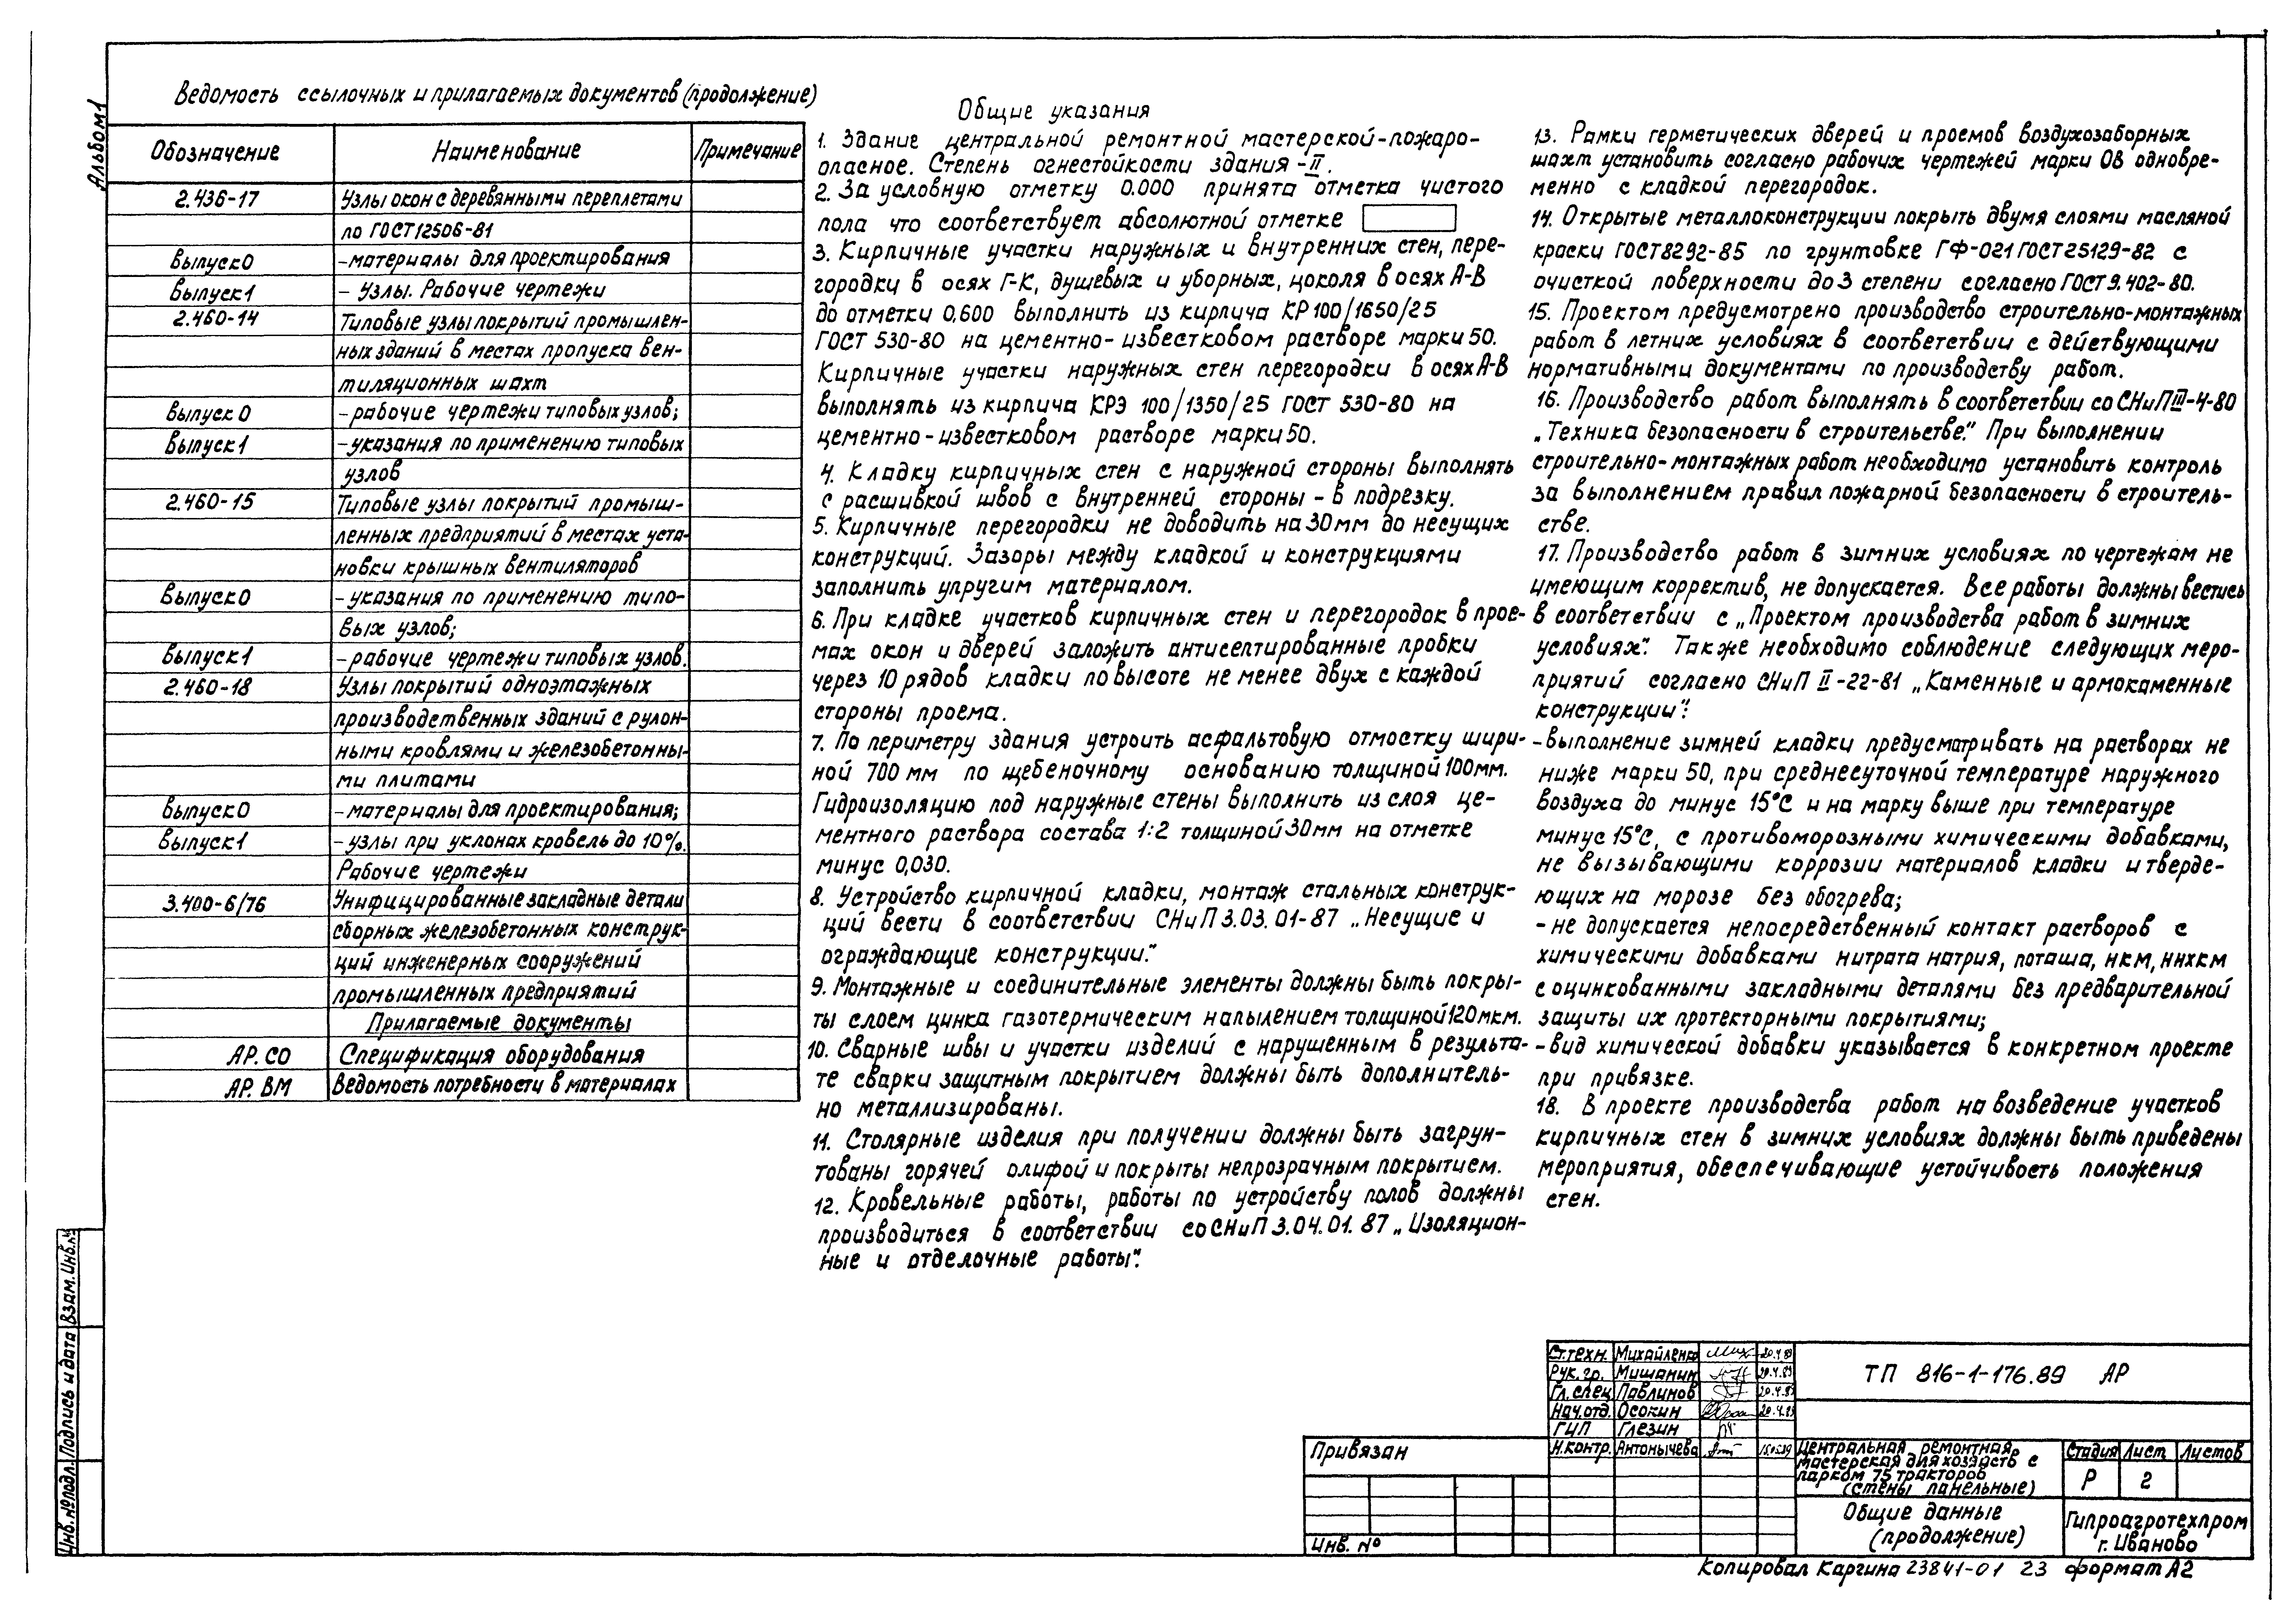 Альбом 1
Ведомость ссылочных и прилагаемых документов (продолжение)
Обозначение Наименование Примечание
2.436-17 Узлы окон с деревянными переплетами
по ГОСТ 12506-81
Выпуск 0 -материалы для проектирования
Выпуск 1 - Узлы. Рабочие чертежи
2.460-14 Типовые узлы покрытий промышлен-
ных зданий в местах пропуска вен-
тиляционных шахт
Выпуск 0 -рабочие чертежи типовых узлов;
Выпуск 1 -указания по применению типовых
узлов
2.460-15 Типовые узлы покрытий промыш-
ленных предприятий в местах уста-
новки крышных вентиляторов
Выпуск 0 -указания по применению типо-
вых узлов;
Выпуск 1 -рабочие чертежи типовых узлов.
2.460-18 Узлы покрытий одноэтажных
производственных зданий с рулон-
ными кровлями и железобетонны-
ми плитами
Выпуск 0 -материалы для проектирования;
Выпуск 1 -узлы при уклонах кровель до 10%.
Рабочие чертежи
3.400-6/76 Унифицированные закладные детали
сборных железобетонных конструк-
ций инженерных сооружений
промышленных предприятий
Прилагаемые документы
АР.СО Спецификация оборудования
АР.ВМ Ведомость потребности в материалах
Общие указания
1. Здание центральной ремонтной мастерской-пожаро-
опасное. Степень огнестойкости здания -II.
2. За условную отметку 0.000 принята отметка чистого
пола что соответствует абсолютной отметке
3. Кирпичные участки наружных и внутренних стен, пере-
городки в осях Г-К, душевых и уборных, цоколя в осях А-В
до отметки 0,600 выполнить из кирпича КР 100/1650/25
ГОСТ 530-80 на цементно-известковом растворе марки 50.
Кирпичные участки наружных стен перегородки в осях А-В
выполнять из кирпича КРЭ 100/1350/25 ГОСТ 530-80 на
цементно-известковом растворе марки 50.
4. Кладку кирпичных стен с наружной стороны выполнять
с расшивкой швов с внутренней стороны - в подрезку.
5. Кирпичные перегородки не доводить на 30 мм до несущих
конструкций. Зазоры между кладкой и конструкциями
заполнить упругим материалом.
6. При кладке участков кирпичных стен и перегородок в прое-
мах окон и дверей заложить антисептированные пробки
через 10 рядов кладки по высоте не менее двух с каждой
стороны проема.
7. По периметру здания устроить асфальтовую отмостку шири-
ной 700 мм по щебеночному основанию толщиной 100мм.
Гидроизоляцию под наружные стены выполнить из слоя це-
ментного раствора состава 1:2 толщиной 30мм на отметке
минус 0,030.
8. Устройство кирпичной кладки, монтаж стальных конструк-
ций вести в соответствии СНиП 3.03.01-87 „Несущие и
ограждающие конструкции".
9. Монтажные и соединительные элементы должны быть покры-
ты слоем цинка газотермическим напылением толщиной 120мкм.
10. Сварные швы и участки изделий с нарушенным в результа-
те сварки защитным покрытием должны быть дополнитель-
но металлизированы.
11. Столярные изделия при получении должны быть загрун-
тованы горячей олифой и покрыты непрозрачным покрытием.
12. Кровельные работы, работы по устройству полов должны
производиться в соответствии со СНиП 3.04.01.87 „Изоляцион-
ные и отделочные работы".
13. Рамки герметических дверей и проемов воздухозаборных
шахт установить согласно рабочих чертежей марки ОВ одновре-
менно с кладкой перегородок.
14. Открытые металлоконструкции покрыть двумя слоями масляной
краски ГОСТ 8292-85 по грунтовке ГФ-021 ГОСТ 25129-82 с
очисткой поверхности до 3 степени согласно ГОСТ 9.402-80.
15. Проектом предусмотрено производство строительно-монтажных
работ в летних условиях в соответствии с действующими
нормативными документами по производству работ.
16. Производство работ выполнять в соответствии со СНиП III-4-80
„Техника безопасности в строительстве." При выполнении
строительно-монтажных работ необходимо установить контроль
за выполнением правил пожарной безопасности в строитель-
стве.
17. Производство работ в зимних условиях по чертежам не
имеющим корректив, не допускается. Все работы должны вестись
в соответствии с „Проектом производства работ в зимних
условиях". Также необходимо соблюдение следующих меро-
приятий согласно СНиП II-22-81 „Каменные и армокаменные
конструкции":
-выполнение зимней кладки предусматривать на растворах не
ниже марки 50, при среднесуточной температуре наружного
воздуха до минус 15°С и на марку выше при температуре
минус 15°С, с противоморозными химическими добавками,
не вызывающими коррозии материалов кладки и тверде-
ющих на морозе без обогрева;
-не допускается непосредственный контакт растворов с
химическими добавками нитрата натрия, поташа, НКМ, ННХКМ
с оцинкованными закладными деталями без предварительной
защиты их протекторными покрытиями;
-вид химической добавки указывается в конкретном проекте
при привязке.
18. В проекте производства работ на возведение участков
кирпичных стен в зимних условиях должны быть приведены
мероприятия, обеспечивающие устойчивость положения
стен.
Взам. Инв.№
Подпись и дата
Инв.№ подл.
Привязан
Инв. №
Ст.техн. Михайленко 20.4.89
Рук.гр. Мишанин 20.4.89
Гл.спец Павлинов 20.4.89
Нач.отд. Осокин 20.4.89
ГИП Глезин
Н.контр. Антонычева
ТП 816-1-176.89 АР
Центральная ремонтная
мастерская для хозяйств с
парком 75 тракторов
(стены панельные)
Стадия Лист Листов
Р 2
Общие данные
(продолжение)
Гипроагротехпром
г. Иваново
Копировал Каргина 23841-01 23 формат А2